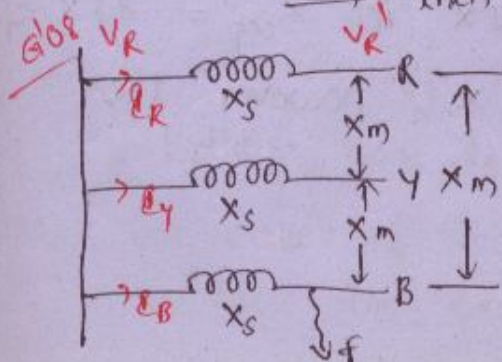 G'08 V_R V_R'
i_R X_S R
X_m
i_Y X_S Y X_m
X_m
i_B X_S B
f